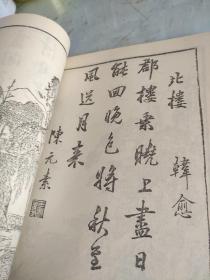 北樓 韓愈
郡樓乘曉上盡日
能回晚色將秋至
風送月來
陳元素